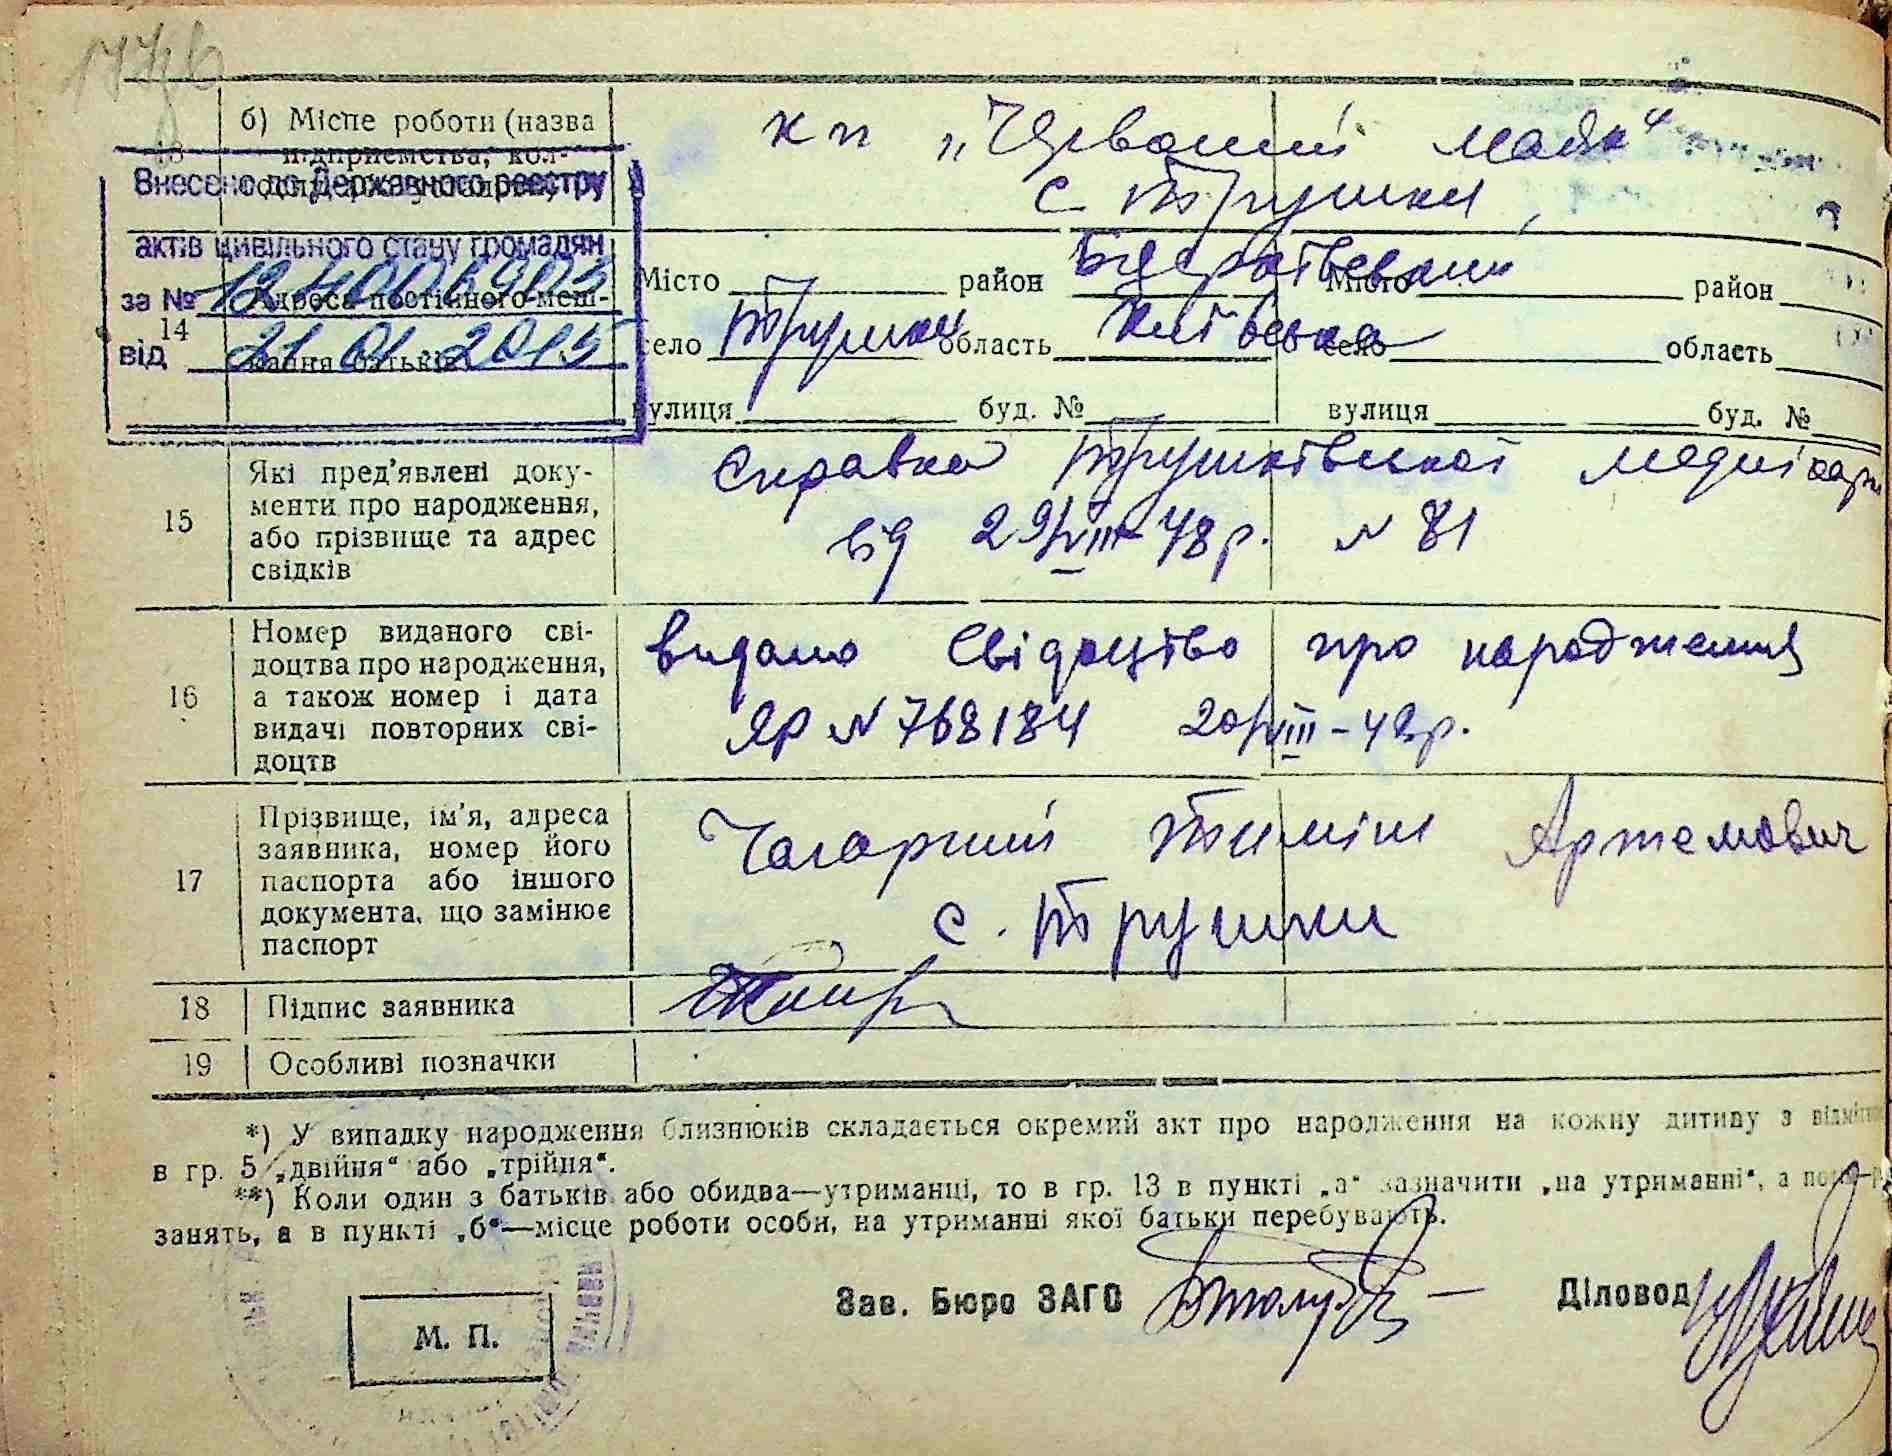 б) Місце роботи (назва
підприємства, кол-
к п „Червоний маяк“
с Трушки,
13
Внесено до Державного реєстру
актів цивільного стану громадян
за №
від 21.01.2015
14
Адреса постійного меш-
кання батьків
Місто район
село Трушки область Київська
вулиця буд. №
Місто район
село область
вулиця буд. №
15
Які пред'явлені доку-
менти про народження,
або прізвище та адрес
свідків
Справка Трушківської
від 29/VIII-48р. N 81
16
Номер виданого сві-
доцтва про народження,
а також номер і дата
видачі повторних сві-
доцтв
видано Свідоцтво про народження
ЯР N 768184
17
Прізвище, ім'я, адреса
заявника, номер його
паспорта або іншого
документа, що замінює
паспорт
Артемович
с. Трушки
18
Підпис заявника
19
Особливі позначки
*) У випадку народження близнюків складається окремий акт про народження на кожну дитину з
в гр. 5 „двійня“ або „трійня“.
**) Коли один з батьків або обидва—утриманці, то в гр. 13 в пункті „а“ зазначити „на утриманні“, а
занять, а в пункті „б“—місце роботи особи, на утриманні якої батьки перебувають.
Зав. Бюро ЗАГС
Діловод
М. П.